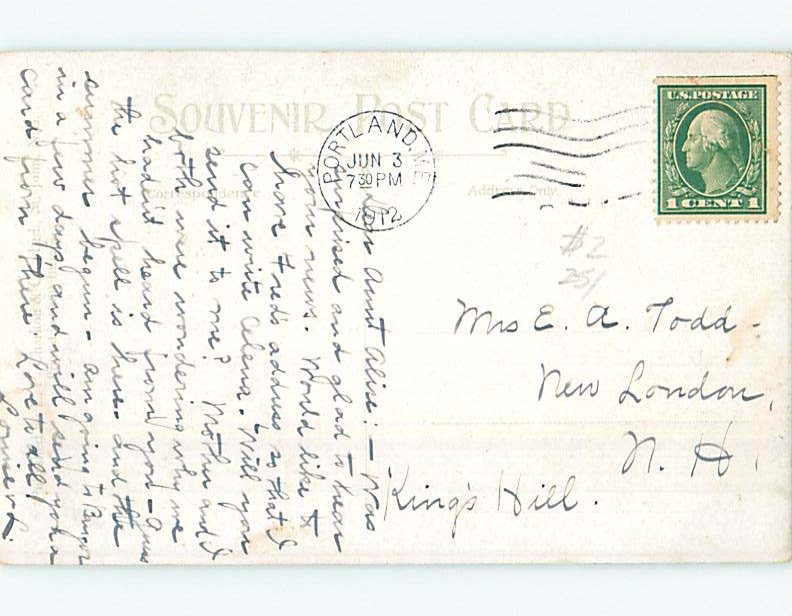 SOUVENIR POST CARD
Correspondence
Address Only.
PORTLAND, ME.
JUN 3
7 30 PM
1912
U.S. POSTAGE
1 CENT 1
$2
25/
Mrs E. A. Todd.
New London,
N. H.
King's Hill.
Dear Aunt Alice: - Was
surprised and glad to hear
your news. Would like to
have Fred's address so that I
can write Celena. Will you
send it to me? Mother and I
both were wondering why we
hadn't heard from you -
the hot spell is here and the
summer begun - am going to Bangor
in a few days and will send you a
card from there Love to all,
Louise